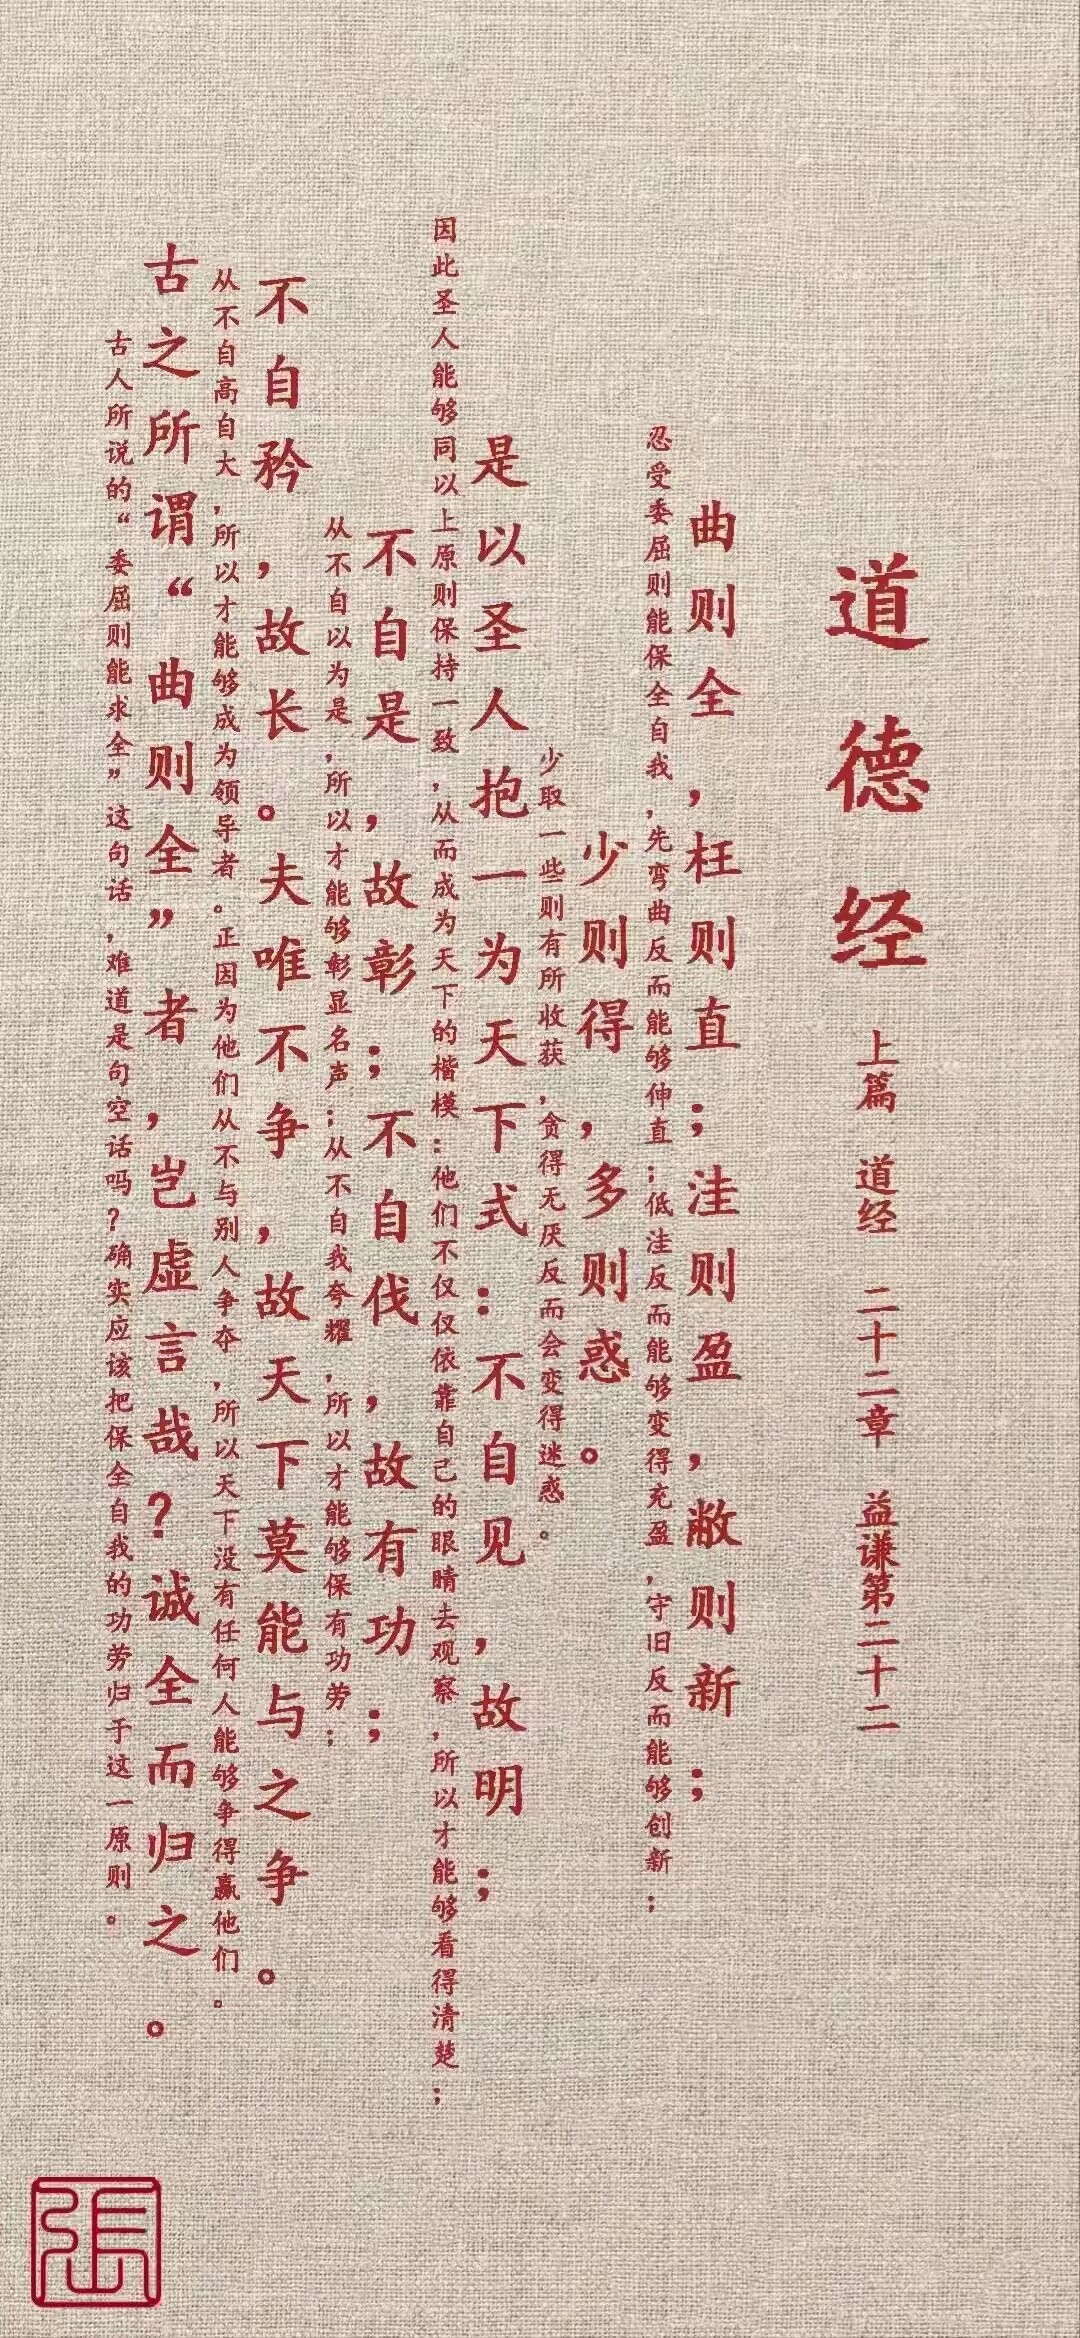 道德经 上篇 道经 二十二章 益谦第二十二
曲则全，枉则直；洼则盈，敝则新；
忍受委屈则能保全自我，先弯曲反而能够伸直；低洼反而能够变得充盈，守旧反而能够创新；
少则得，多则惑。
少取一些则有所收获，贪得无厌反而会变得迷惑。
是以圣人抱一为天下式：不自见，故明；
因此圣人能够同以上原则保持一致，从而成为天下的楷模：他们不仅仅依靠自己的眼睛去观察，所以才能够看得清楚；
不自是，故彰；不自伐，故有功；
从不自以为是，所以才能够彰显名声；从不自我夸耀，所以才能够保有功劳；
不自矜，故长。夫唯不争，故天下莫能与之争。
从不自高自大，所以才能够成为领导者。正因为他们从不与别人争夺，所以天下没有任何人能够争得赢他们。
古之所谓“曲则全”者，岂虚言哉？诚全而归之。
古人所说的“委屈则能求全”这句话，难道是句空话吗？确实应该把保全自我的功劳归于这一原则。
張